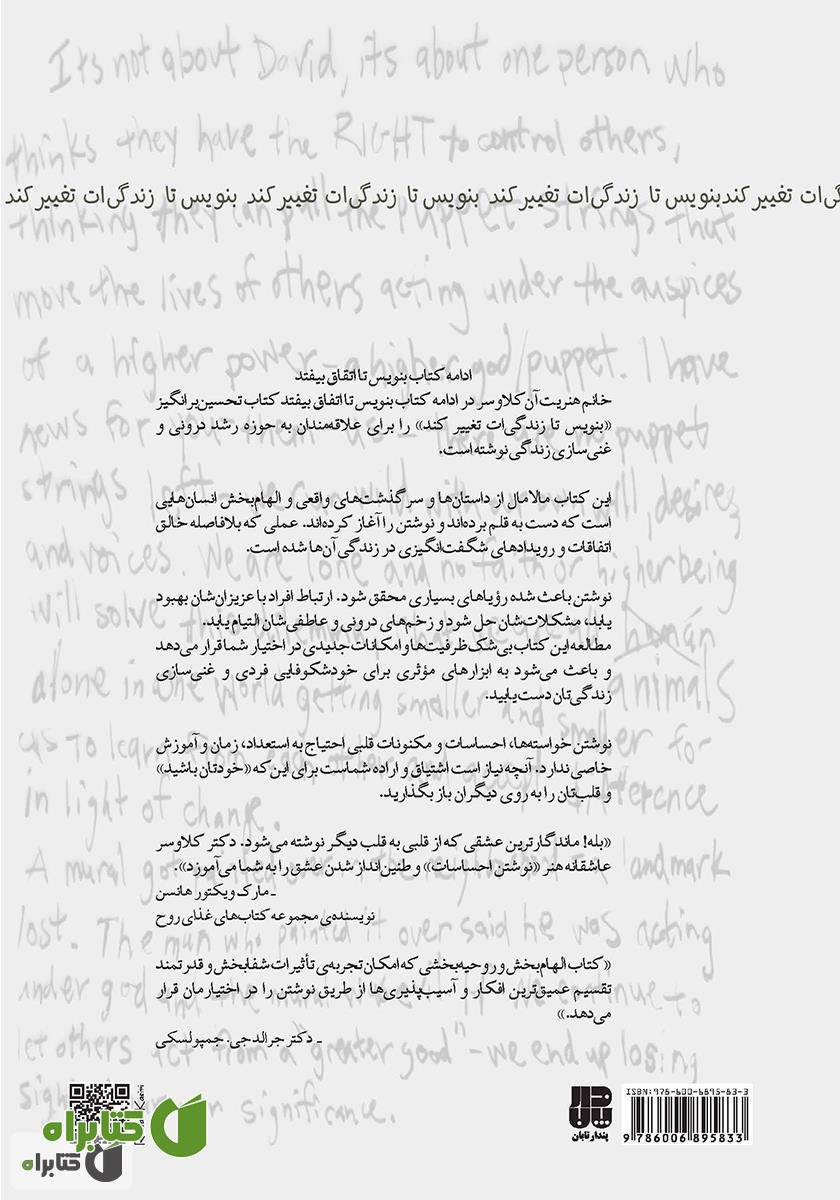 Its not about David, its about one person who
thinks they have the RIGHT to control others,
ی‌ات تغییر کندبنویس تا زندگی‌ات تغییر کند بنویس تا زندگی‌ات تغییر کند بنویس تا زندگی‌ات تغییر کند
thinking they can pull the puppet strings that
move the lives of others acting under the auspices
of a higher power – a higher god/puppet. I have
ادامه کتاب بنویس تا اتفاق بیفتد
خانم هنریت آن کلاوسر در ادامه کتاب بنویس تا اتفاق بیفتد کتاب تحسین‌برانگیز
«بنویس تا زندگی‌ات تغییر کند» را برای علاقه‌مندان به حوزه رشد درونی و
غنی‌سازی زندگی نوشته است.
news for
puppet
strings
desires
این کتاب مالامال از داستان‌ها و سرگذشت‌های واقعی و الهام‌بخش انسان‌هایی
است که دست به قلم برده‌اند و نوشتن را آغاز کرده‌اند. عملی که بلافاصله خالق
اتفاقات و رویدادهای شگفت‌انگیزی در زندگی آن‌ها شده است.
and voices. We are lone and no faith or higher being
will solve
human
نوشتن باعث شده رؤیاهای بسیاری محقق شود. ارتباط افراد با عزیزان‌شان بهبود
یابد، مشکلات‌شان حل شود و زخم‌های درونی و عاطفی‌شان التیام یابد.
مطالعه این کتاب بی‌شک ظرفیت‌ها و امکانات جدیدی در اختیار شما قرار می‌دهد
و باعث می‌شود به ابزارهای مؤثری برای خودشکوفایی فردی و غنی‌سازی
زندگی‌تان دست یابید.
alone in one world getting smaller and smaller for animals
us to learn
difference
نوشتن خواسته‌ها، احساسات و مکنونات قلبی احتیاج به استعداد، زمان و آموزش
خاصی ندارد. آنچه نیاز است اشتیاق و اراده شماست برای این که «خودتان باشید»
و قلب‌تان را به روی دیگران باز بگذارید.
in light of change.
A mural got
landmark
«بله! ماندگارترین عشقی که از قلبی به قلب دیگر نوشته می‌شود. دکتر کلاوسر
عاشقانه هنر «نوشتن احساسات» و طنین‌انداز شدن عشق را به شما می‌آموزد».
ـ مارک ویکتور هانسن
نویسنده‌ی مجموعه کتاب‌های غذای روح
lost. The man who painted it over said he was acting
under god
continue to
«کتاب الهام‌بخش و روحیه‌بخشی که امکان تجربه‌ی تأثیرات شفابخش و قدرتمند
تقسیم عمیق‌ترین افکار و آسیب‌پذیری‌ها از طریق نوشتن را در اختیارمان قرار
می‌دهد.»
ـ دکتر جرالد جی. جمپولسکی
let others act from a "greater good" – we end up losing
significance.
ISBN:978-600-6895-83-3
9 786006 895833
پندار تابان
کتابراه
کتابراه